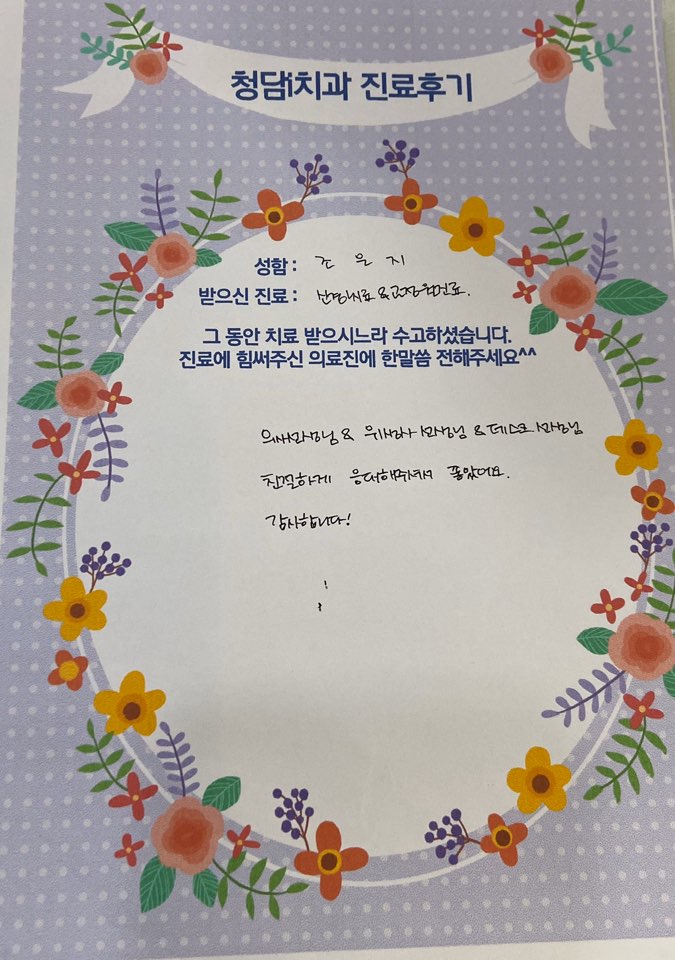 청담i치과 진료후기
성함 : 조 은 지
받으신 진료 : 신경치료 & 교정원진료.
그 동안 치료 받으시느라 수고하셨습니다.
진료에 힘써주신 의료진에 한말씀 전해주세요^^
의사선생님 & 위생사 선생님 & 데스크 선생님
친절하게 응대해주셔서 좋았어요.
감사합니다!